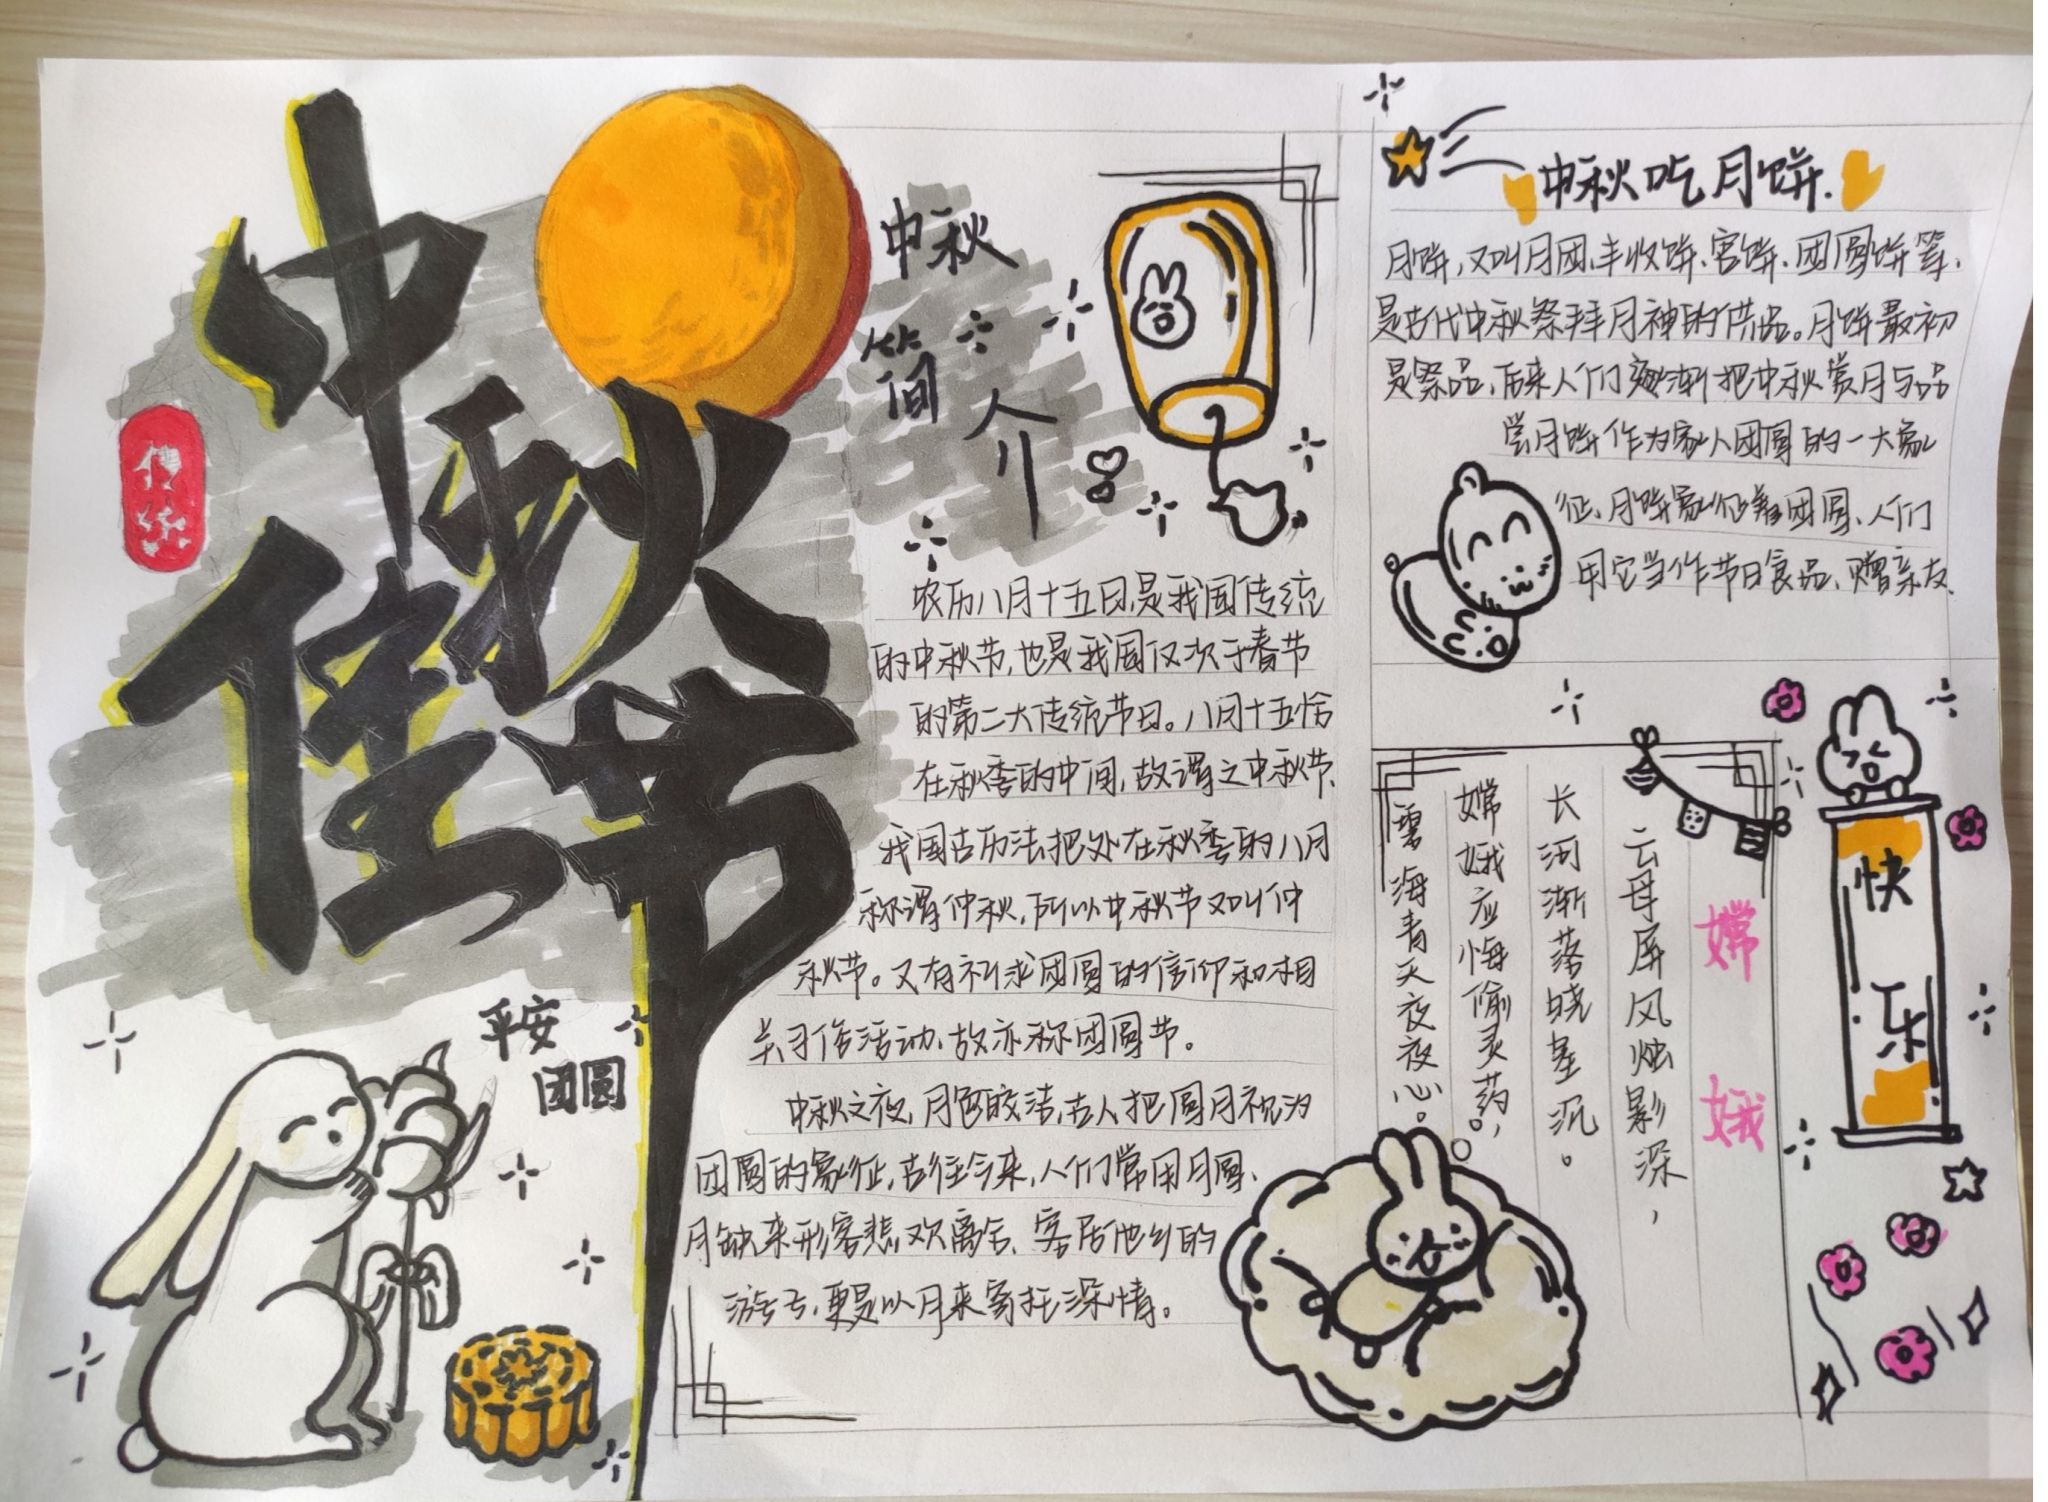 中秋佳节
传统
中秋
简介
农历八月十五日,是我国传统
的中秋节,也是我国仅次于春节
的第二大传统节日。八月十五恰
在秋季的中间,故谓之中秋节.
我国古历法把处在秋季的八月
称谓仲秋,所以中秋节又叫仲
秋节。又有祈求团圆的信仰和相
关习俗活动,故亦称团圆节。
中秋之夜,月色皎洁,古人把圆月视为
团圆的象征,古往今来,人们常用月圆、
月缺来形容悲欢离合、客居他乡的
游子,更是以月来寄托深情。
平安
团圆
中秋吃月饼.
月饼,又叫月团、丰收饼、宫饼、团圆饼等,
是古代中秋祭拜月神的供品。月饼最初
是祭品,后来人们逐渐把中秋赏月与品
尝月饼作为家人团圆的一大象
征,月饼象征着团圆,人们
用它当作节日食品,赠亲友.
嫦娥
云母屏风烛影深,
长河渐落晓星沉。
嫦娥应悔偷灵药,
碧海青天夜夜心。
快乐